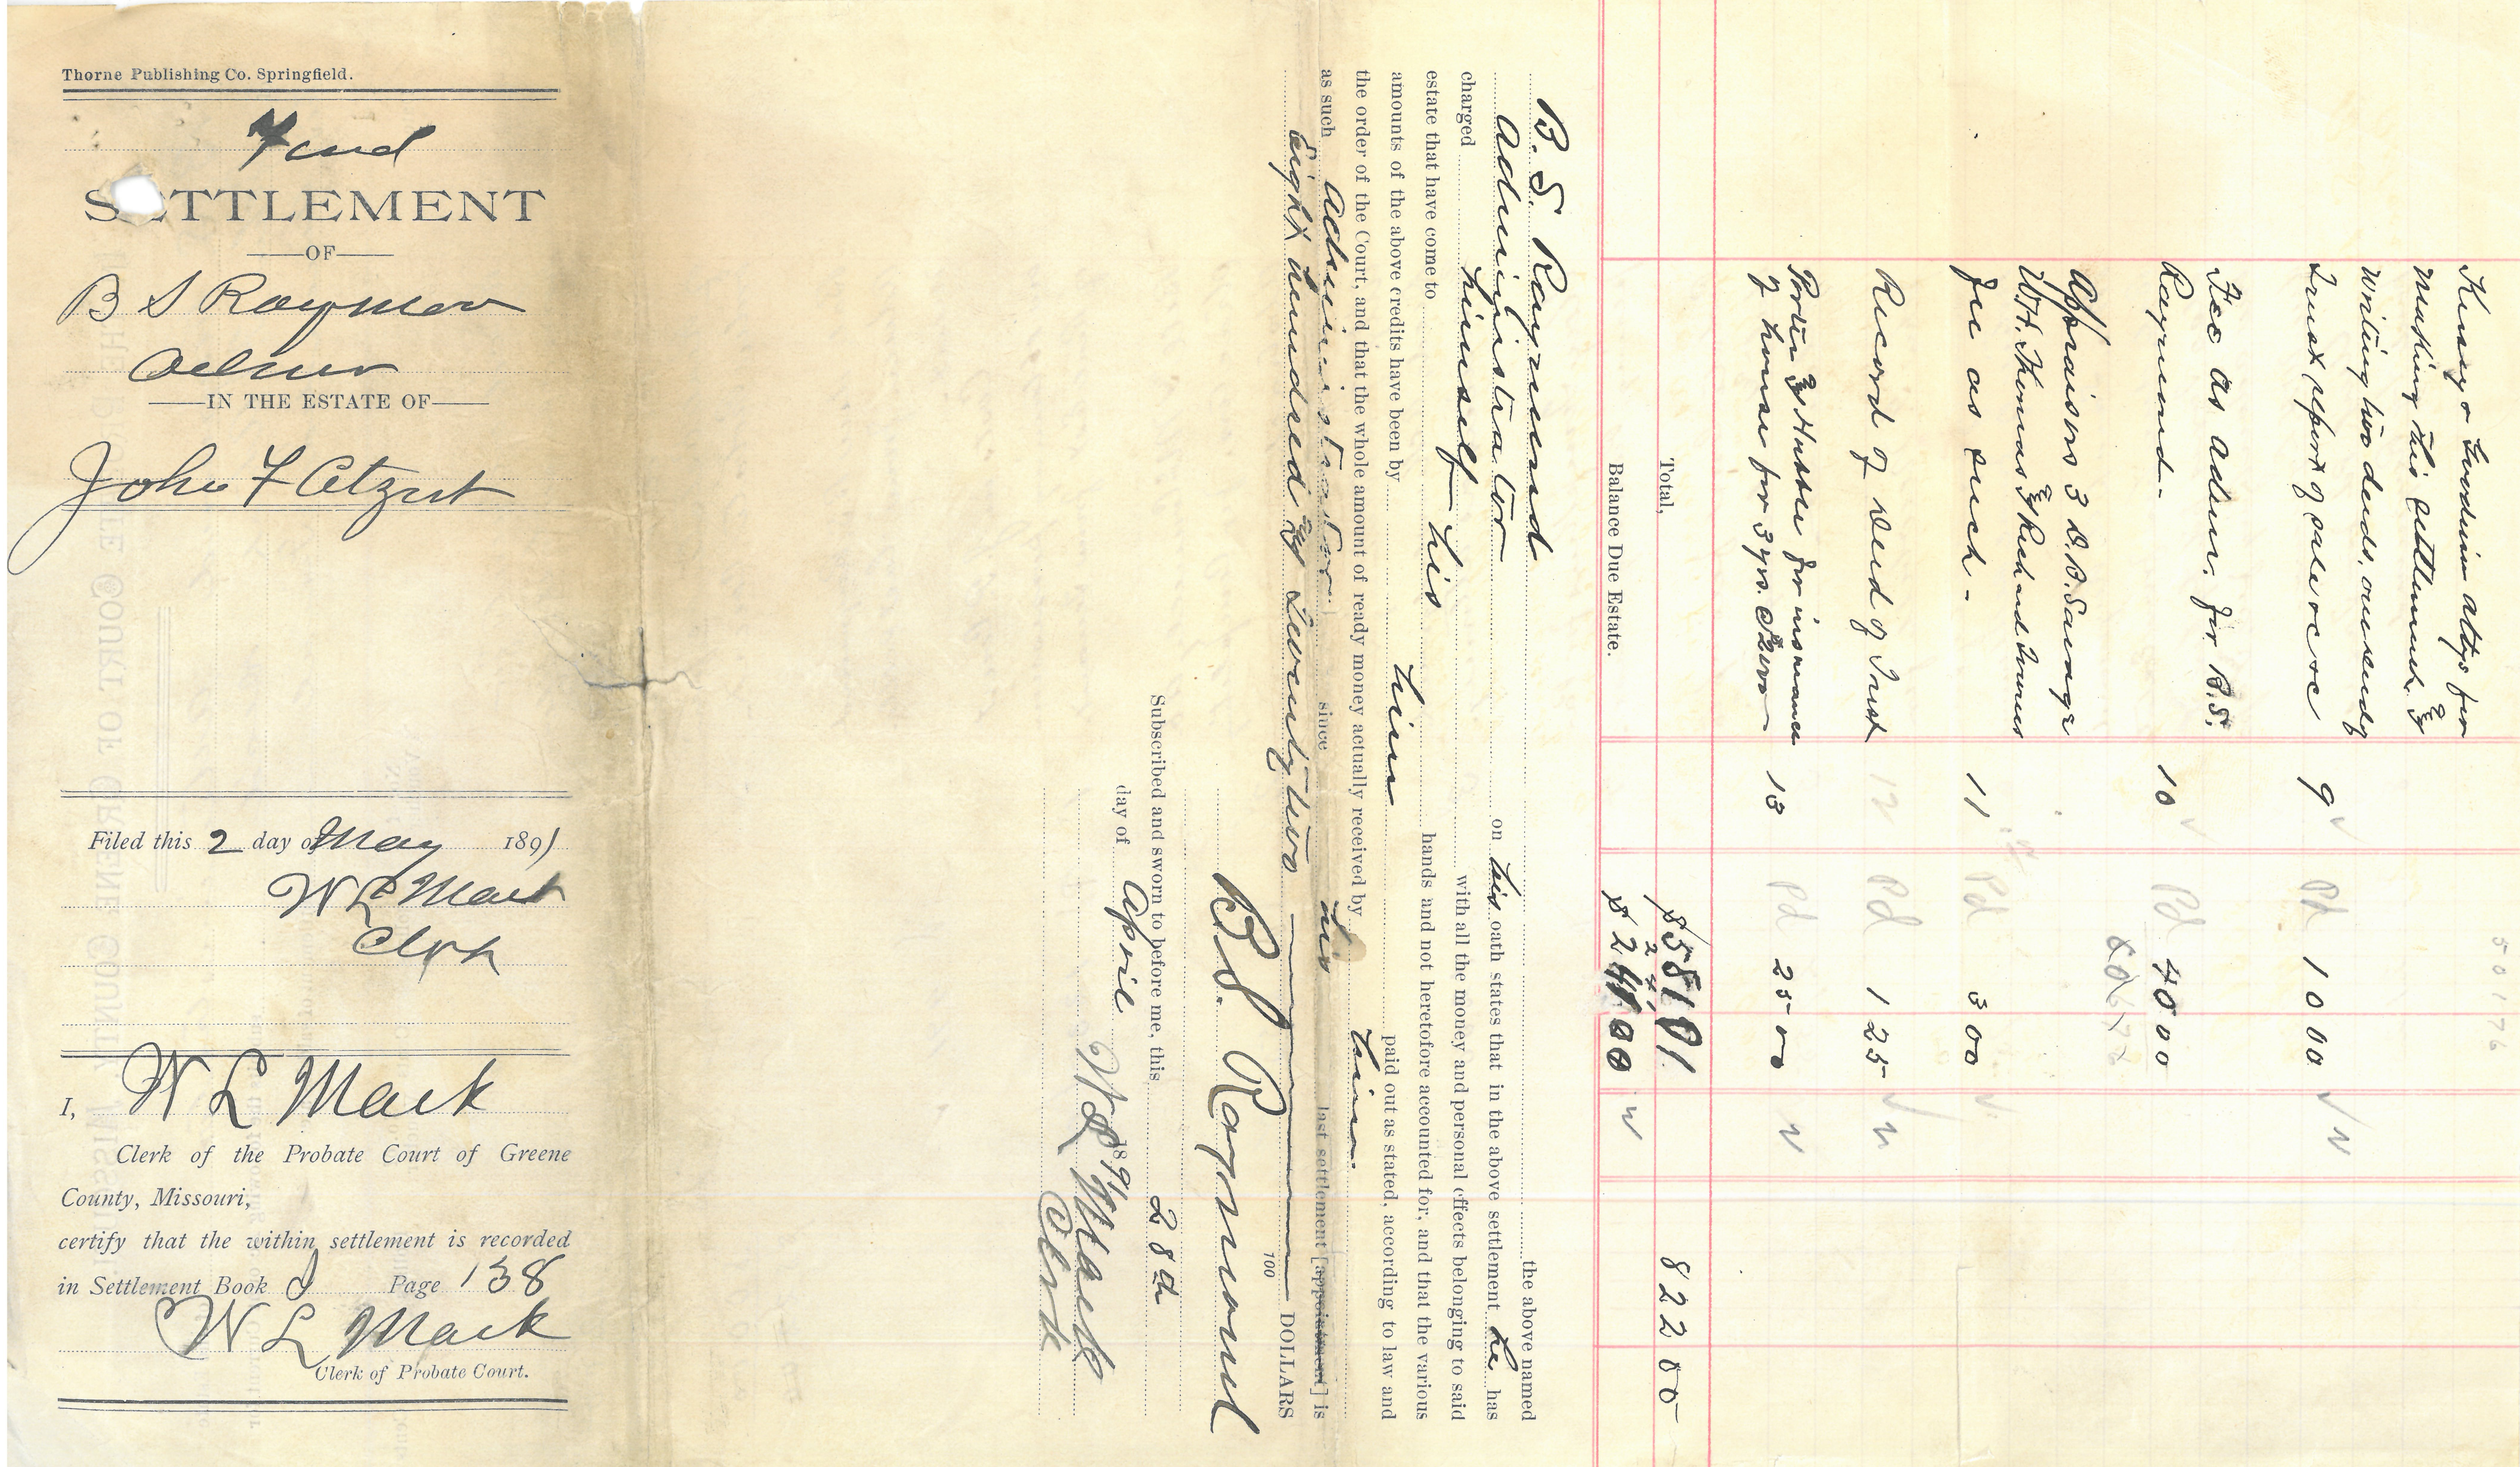 Thorne Publishing Co. Springfield.
SETTLEMENT
OF
B S Raymond
Admr
IN THE ESTATE OF
John F Etzert
Filed this 2 day of May 1891
W L Mack
Clerk
I, W L Mack
Clerk of the Probate Court of Greene
County, Missouri,
certify that the within settlement is recorded
in Settlement Book J Page 138
W L Mack
Clerk of Probate Court.
attys for
making this settlement &
writing two deeds, one deed of
trust report of sale &c &c 9 Pd 10 00
Fee as admr. for B. S.
Raymond. 10 Pd 40 00
Appraisers 3
W. H. Thomas &
fee as such - 11 Pd 3 00
Record of Deed of Trust 12 Pd 1 25
for insurance
of house for 3 yrs. 13 Pd 25 00
Total, 822 00
Balance Due Estate.
B. S. Raymond the above named
Administrator on his oath states that in the above settlement he has
charged himself with all the money and personal effects belonging to said
estate that have come to his hands and not heretofore accounted for, and that the various
amounts of the above credits have been by him paid out as stated, according to law and
the order of the Court, and that the whole amount of ready money actually received by him
as such Administrator since his last settlement [appointment] is
Eight hundred & twenty two 100 DOLLARS
B. S. Raymond
Subscribed and sworn to before me, this 28th
day of April 1891
W L Mack
Clerk